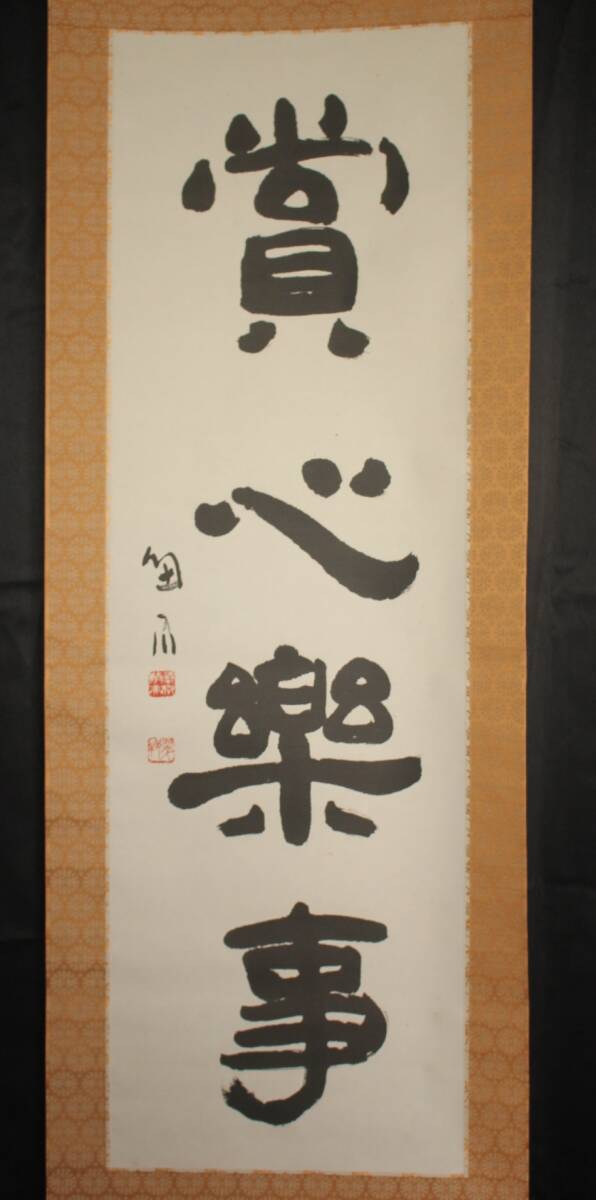 賞心樂事